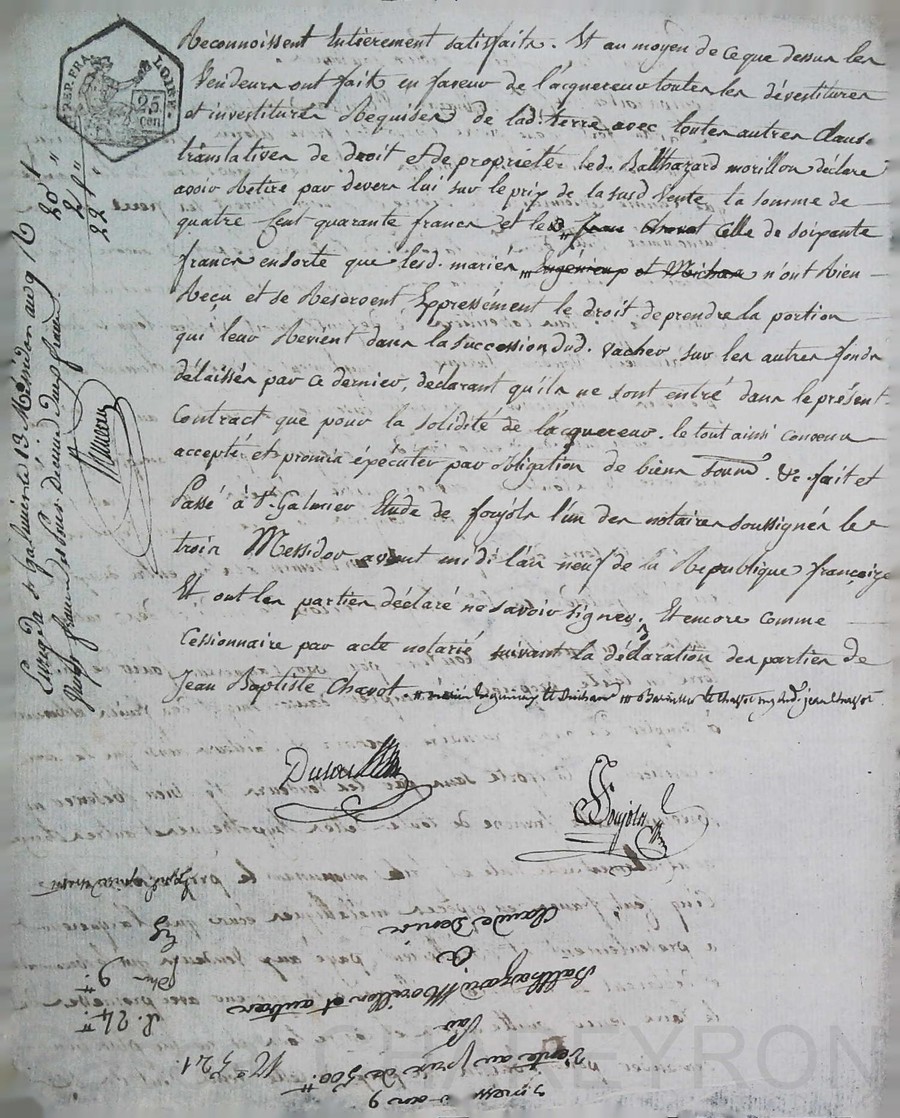 REP. FRA. LOIRE
25 cen
Reconnoissent Entièrement satisfaits. Et au moyen de ce que dessus les
Vendeurs ont fait en faveur de l'acquereur toutes les dévestitures
et investitures Requises de lad. terre avec toutes autres Claus.
translatives de droit et de propriété. led. Balthazard morillon déclare
avoir Retiré par devers lui sur le prix de la susd. Vente la somme de
quatre Cent quarante francs et les Jean Chavot Celle de soixante
francs ensorte que lesd. mariés n'ont Rien
Reçu et se Reservent Expressément le droit de prendre la portion
qui leur Revient dans la succession dud. Vacher sur les autres fonds
délaissés par ce dernier, déclarant qu'ils ne sont entré dans le présent
Contract que pour la solidité de l'acquereur. le tout ainsi convenu
accepté et promis éxécuter par obligation de biens soum. &c. fait et
Passé à St Galmier Etude de foujols l'un des notaires soussignés le
trois Messidor avant midi l'an neuf de la République françoise
Et ont les parties déclaré ne savoir signer. Et encore comme
Cessionnaire par acte notarié suivant la déclaration des parties de
Jean Baptiste Chavot.
Foujols
20
2
22
Enreg. à St galmier le 13 Messidor an 9
messid. an 9
Vente au prix de 500.
Par
Balthazard Morillon et autres
à
Claude Denis
N° 521
CHAREYRON